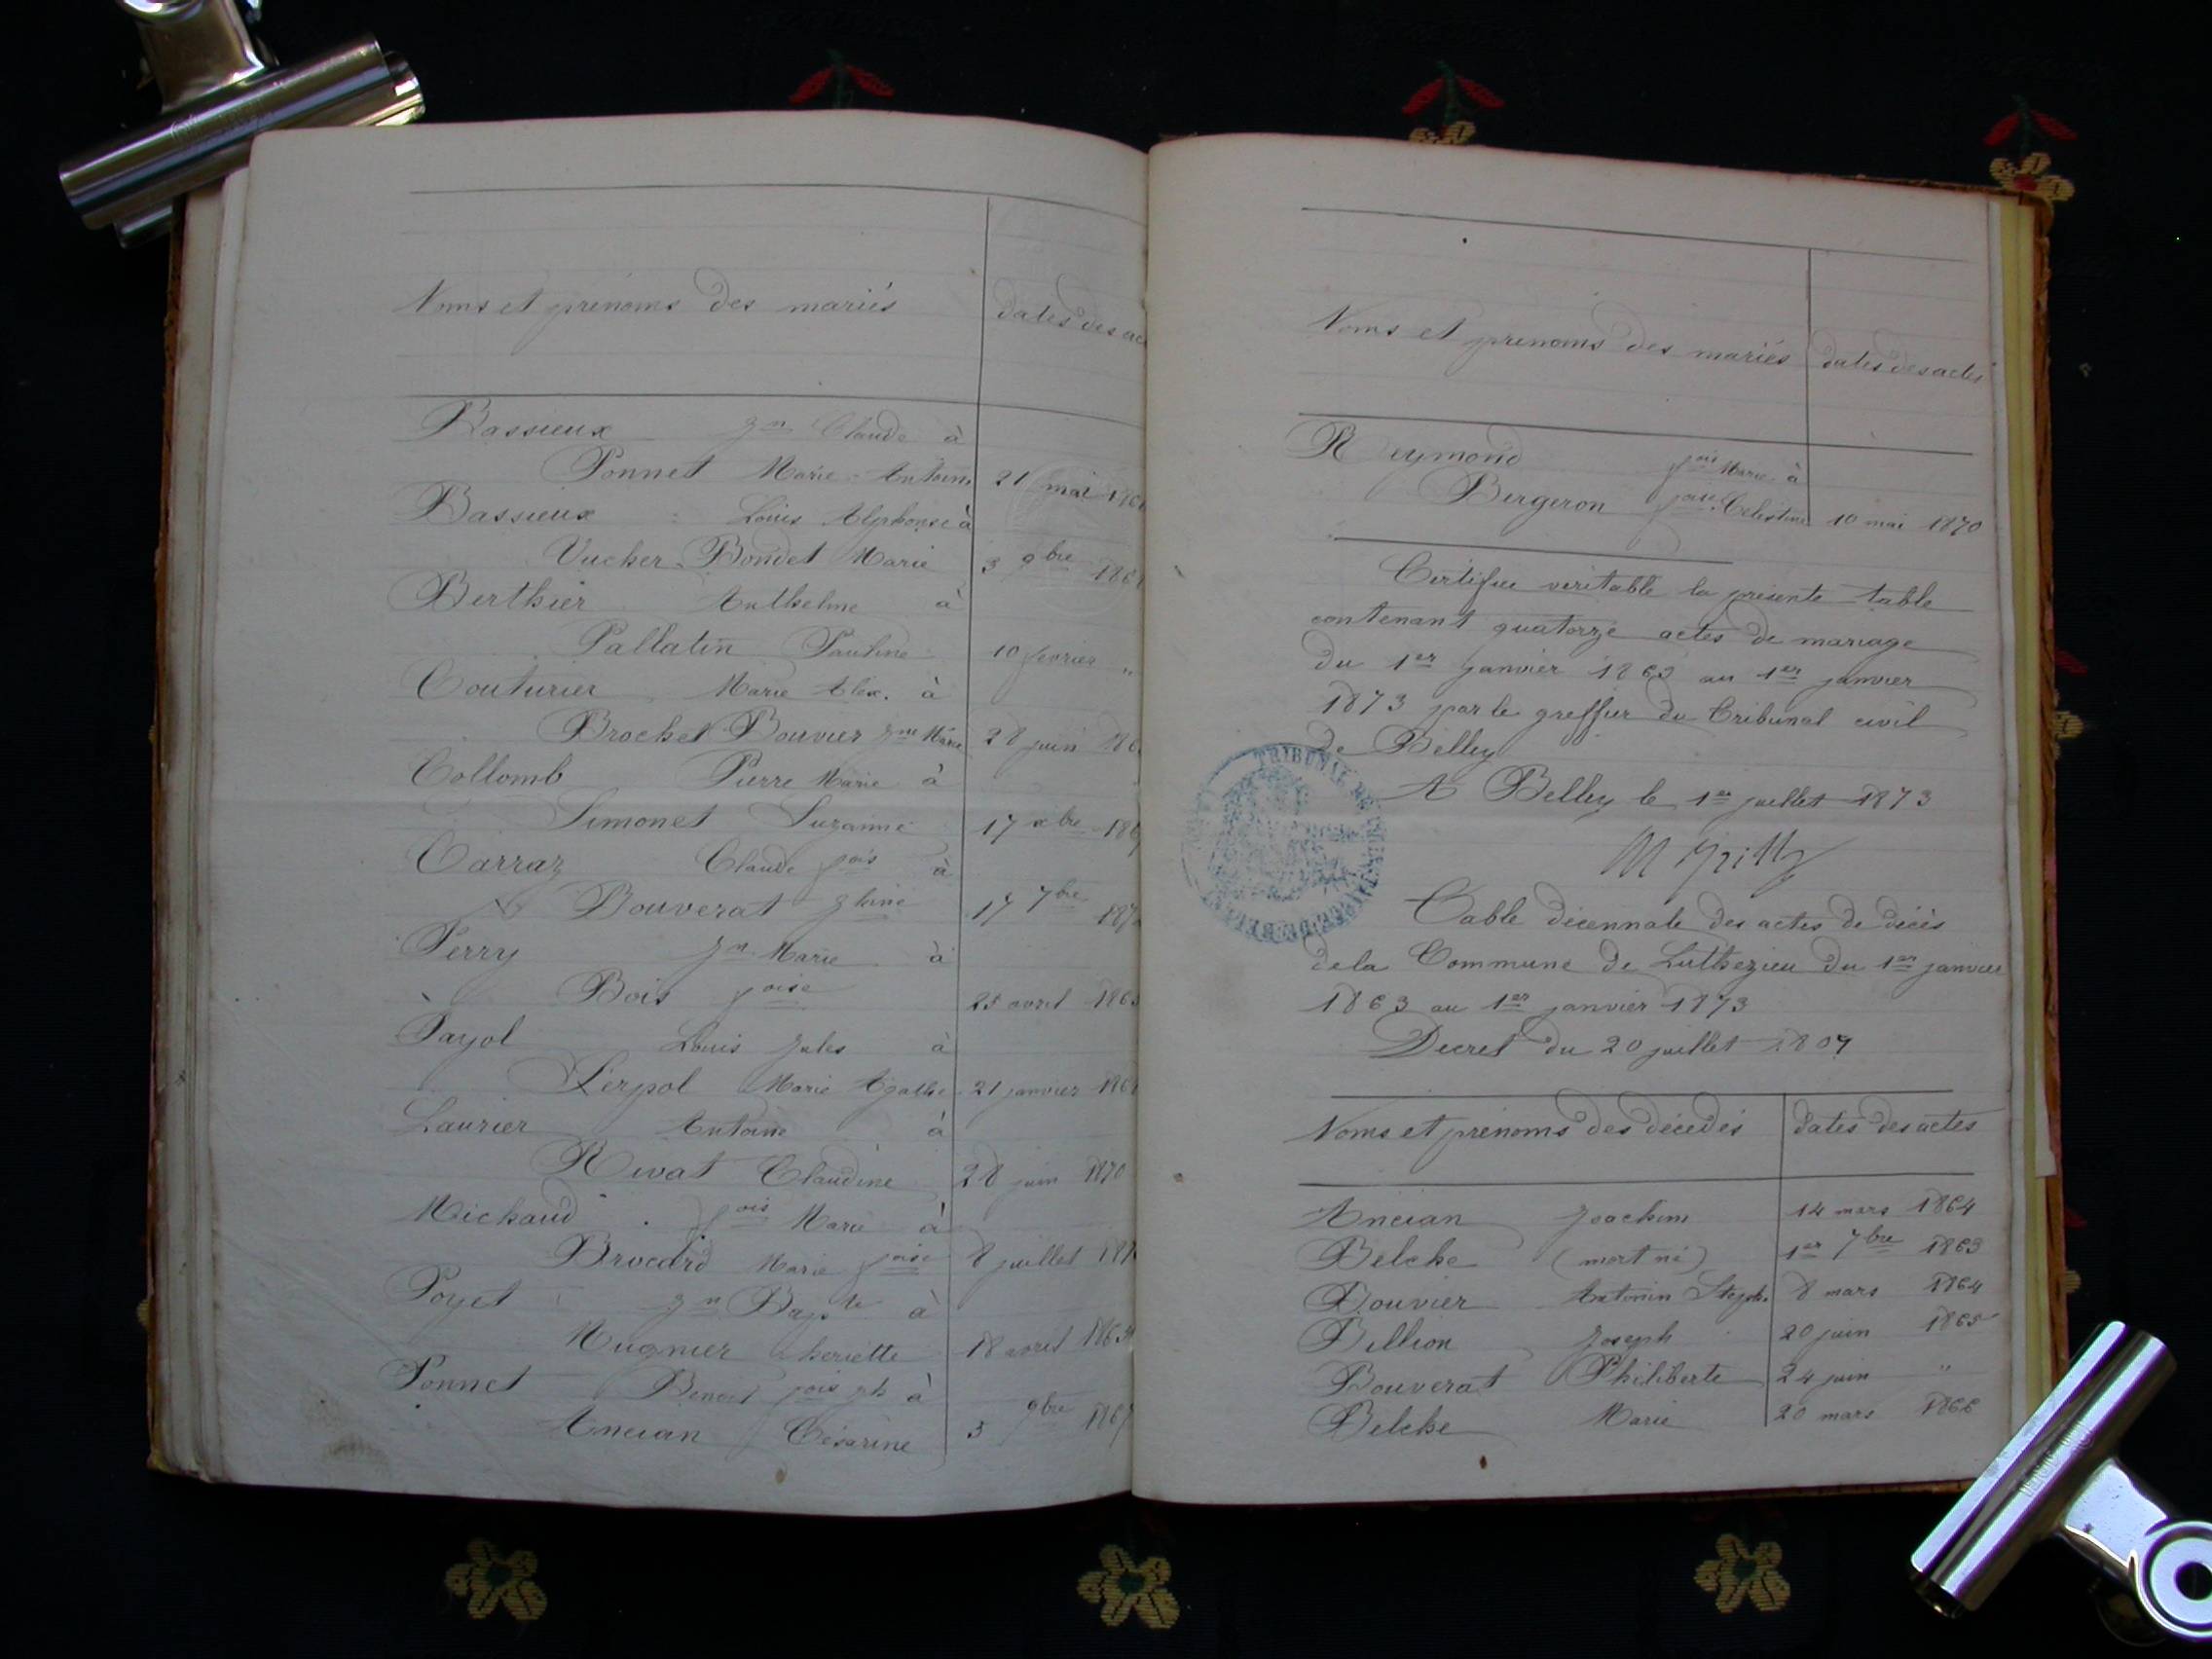 Noms et prénoms des mariés
dates des ac
Bassieux Jn Claude à
Ponnet Marie Antoin 21 mai
Bassieux Louis Alphonse à
Vucher Bondet Marie 3 9bre
Berthier Anthelme à
Pallatin Pauline 10 fevrier "
Couturier Marie Alex. à
Brochet Bouvier Marie 28 juin
Collomb Pierre Marie à
Simonet Suzanne 17 xbre
Carraz Claude fois à
Bouverat 17 7bre
Perry Jn Marie à
Bois foise 25 avril
Payol Louis Jules à
Serpol Marie Agathe 21 janvier
Laurier Antoine à
Rivat Claudine 28 juin 1870
Michaud fois Marie à
Brocard Marie foise 8 juillet
Poyet Jn Bapte à
Mugnier heriette 18 avril
Ponnet Benoit fois à
Ancian Césarine 3 9bre
Noms et prenoms des mariés
dates des actes
Reymond fois Marie à
Bergeron foise Celestine 10 mai 1870
Certifiee veritable la présente table
contenant quatorze actes de mariage
du 1er janvier 1863 au 1er janvier
1873 par le greffier du Tribunal civil
de Belley
A Belley le 1er juillet 1873
TRIBUNAL DE
Table décennale des actes de décès
de la Commune de Luthezieu du 1er janvier
1863 au 1er janvier 1873
Decret du 20 juillet 1807
Noms et prénoms des décédés
dates des actes
Ancian Joachim 14 mars 1864
Belche (mort né) 1er 7bre 1863
Bouvier Antonin Steph. 8 mars 1864
Billion Joseph 20 juin 1865
Bouverat Philiberte 24 juin "
Belche Marie 20 mars 1866